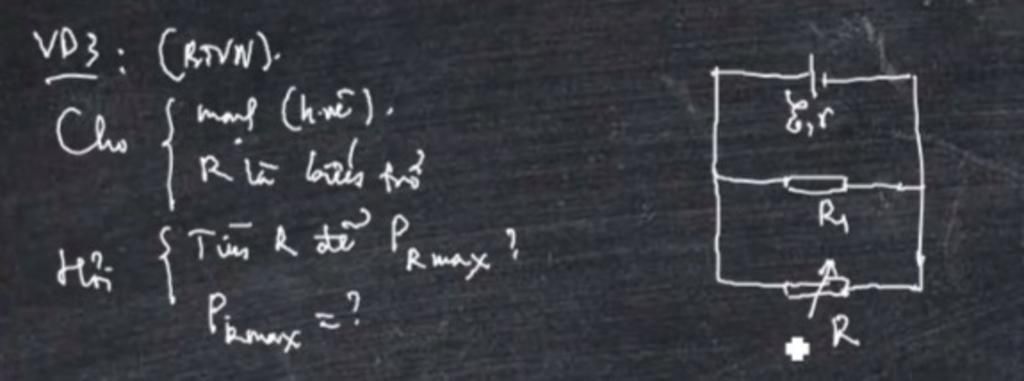 VD3: (BTVN).
Cho { mạch (h.vẽ).
R là biến trở
Hỏi { Tìm R để P_Rmax?
P_Rmax = ?
ξ, r
R₁
R